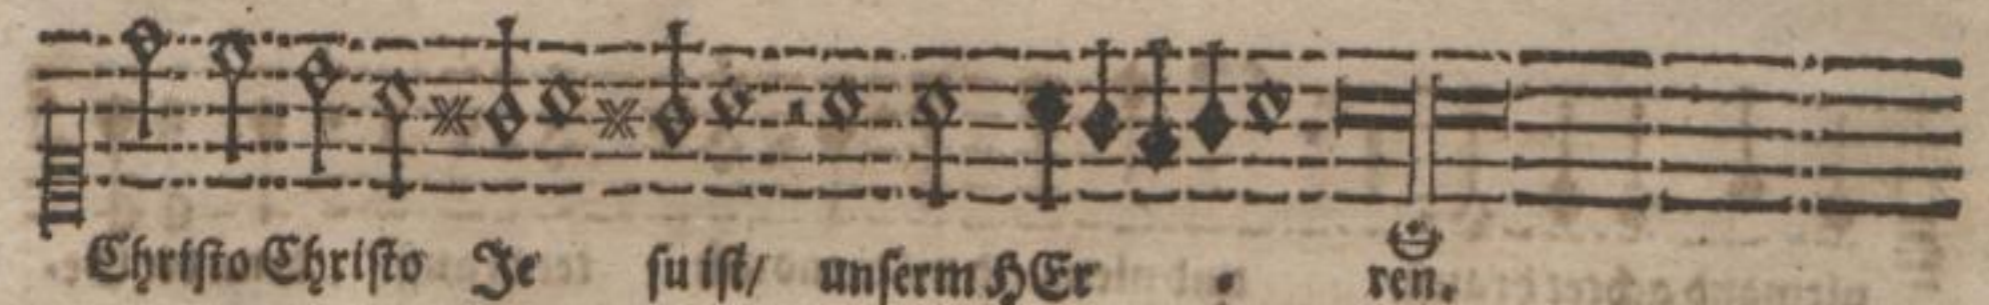 Christo Christo Je ſu iſt/ unſerm HEr - ren.